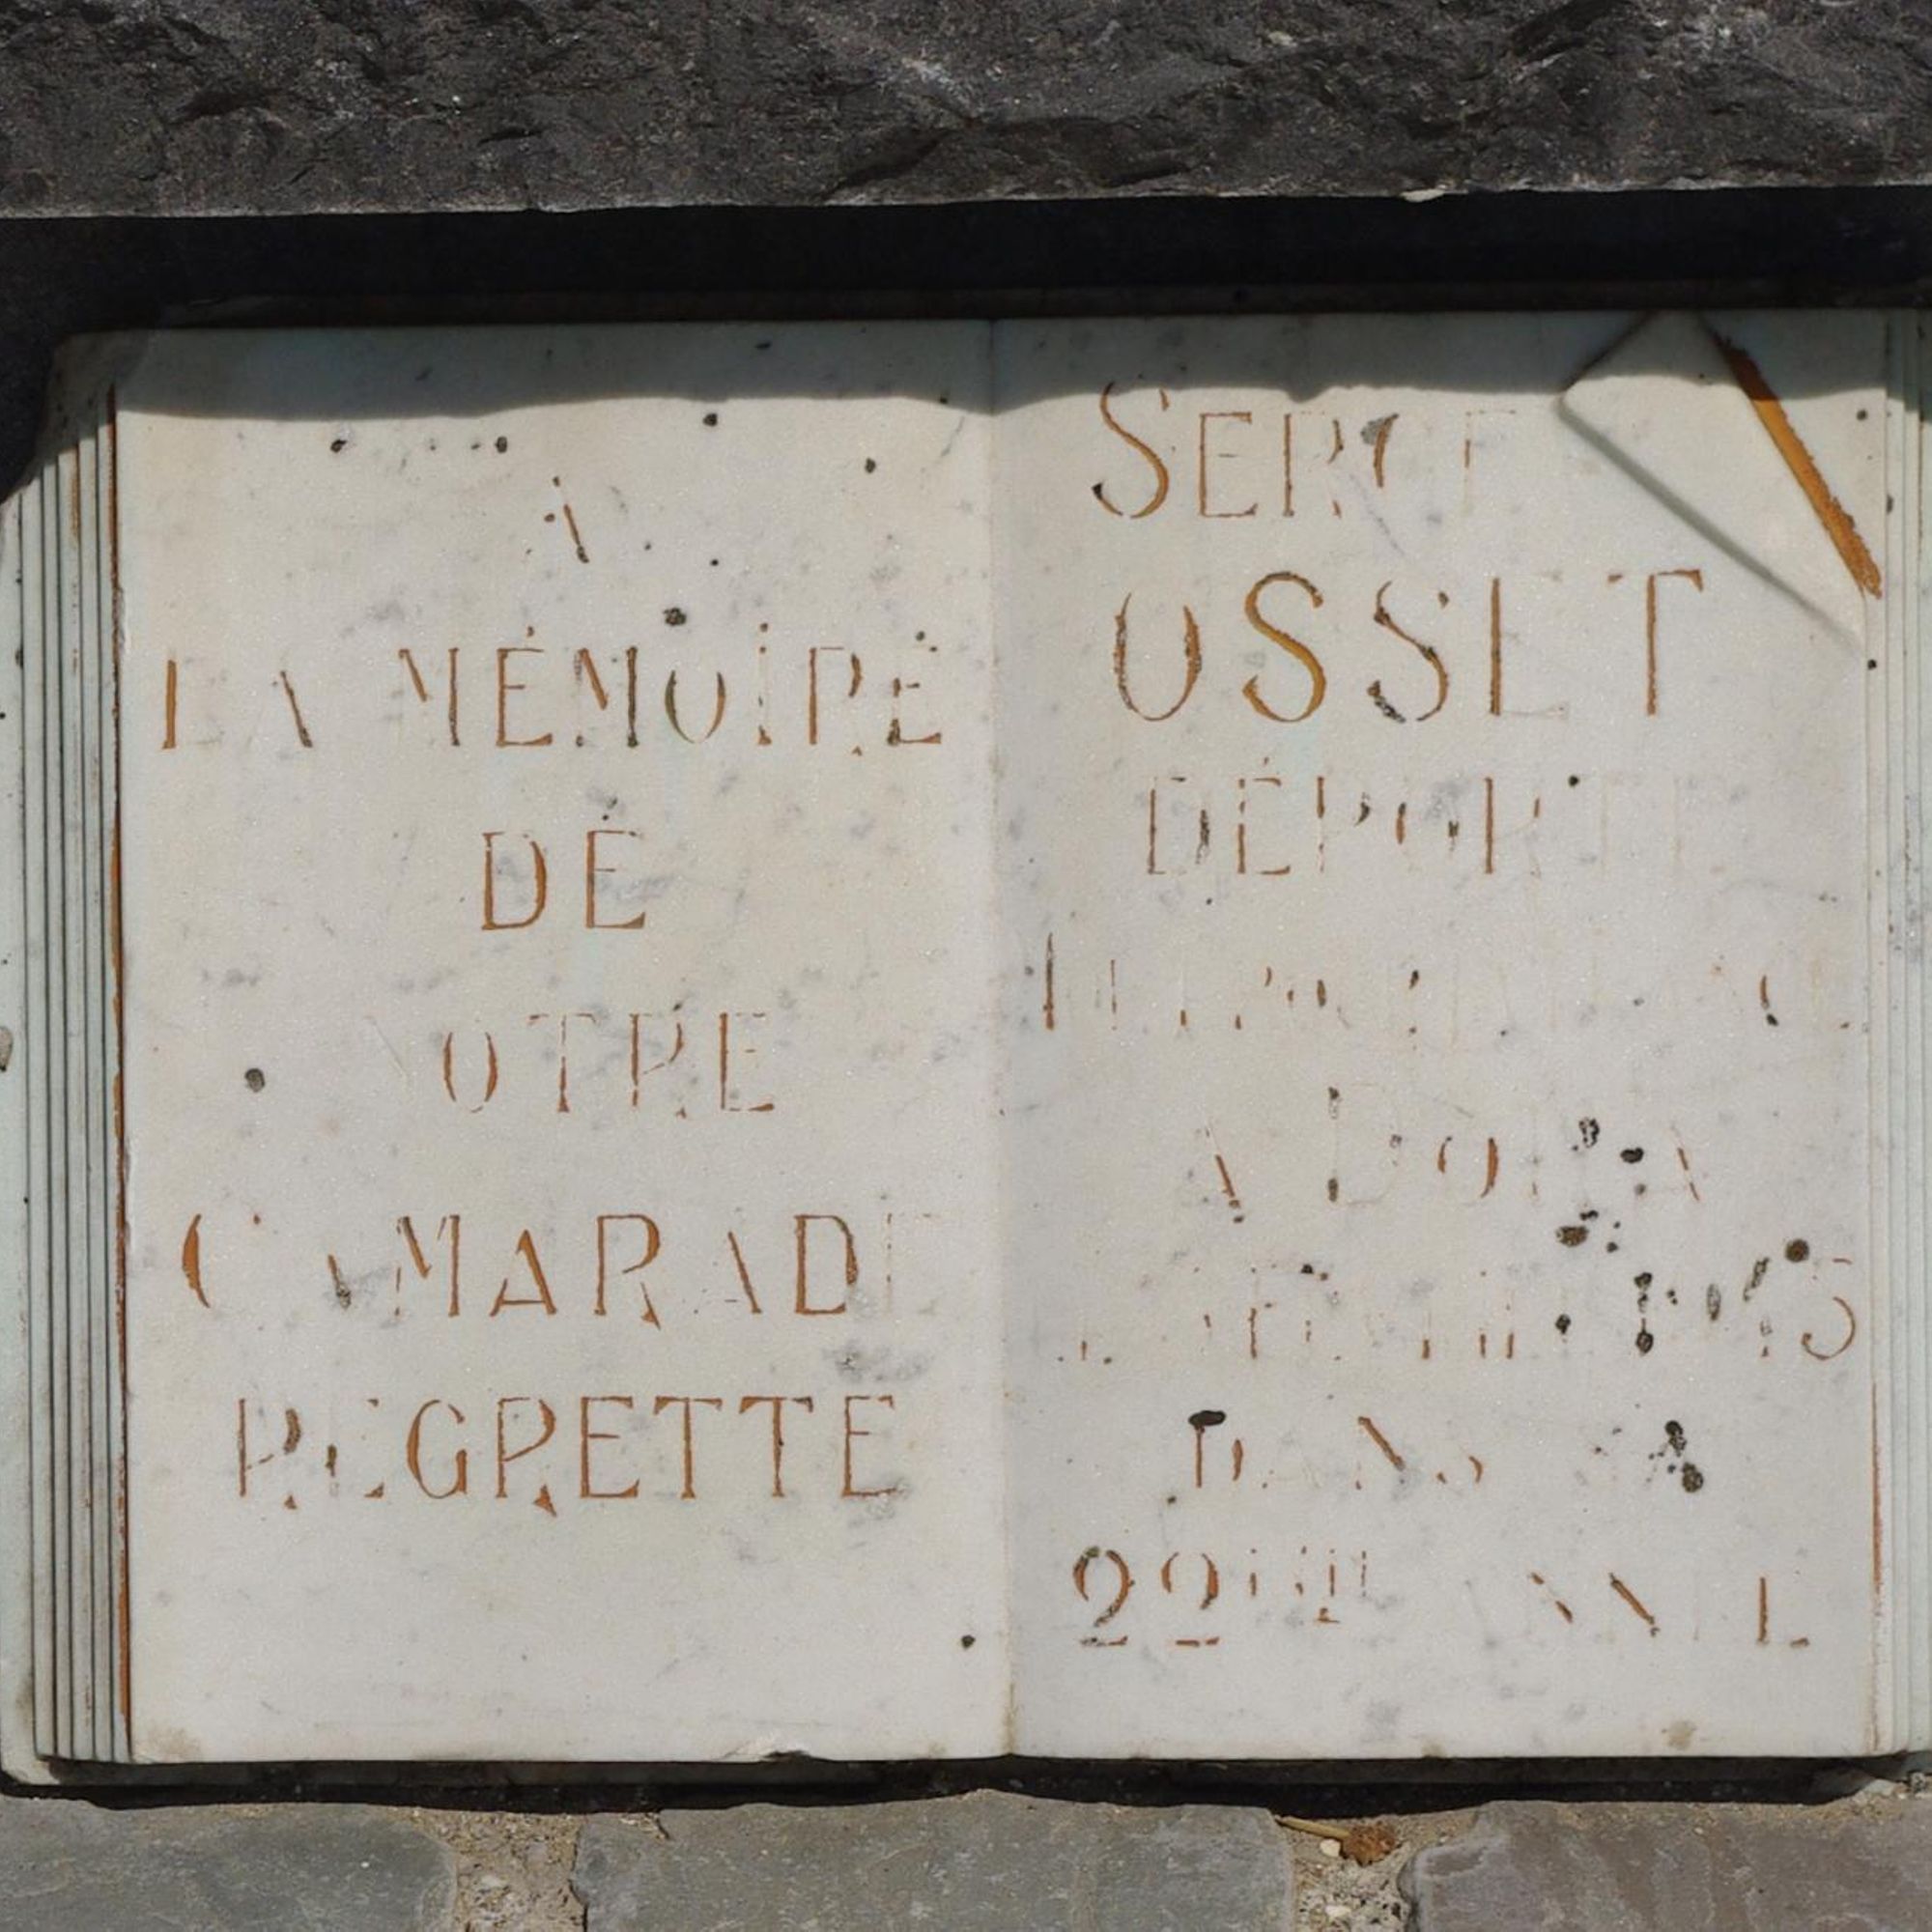 A
LA MÉMOIRE
DE
NOTRE
CAMARADE
REGRETTE
SERGE
OSSET
DÉPORTÉ
A DORA
DANS SA
22ÈME ANNÉE